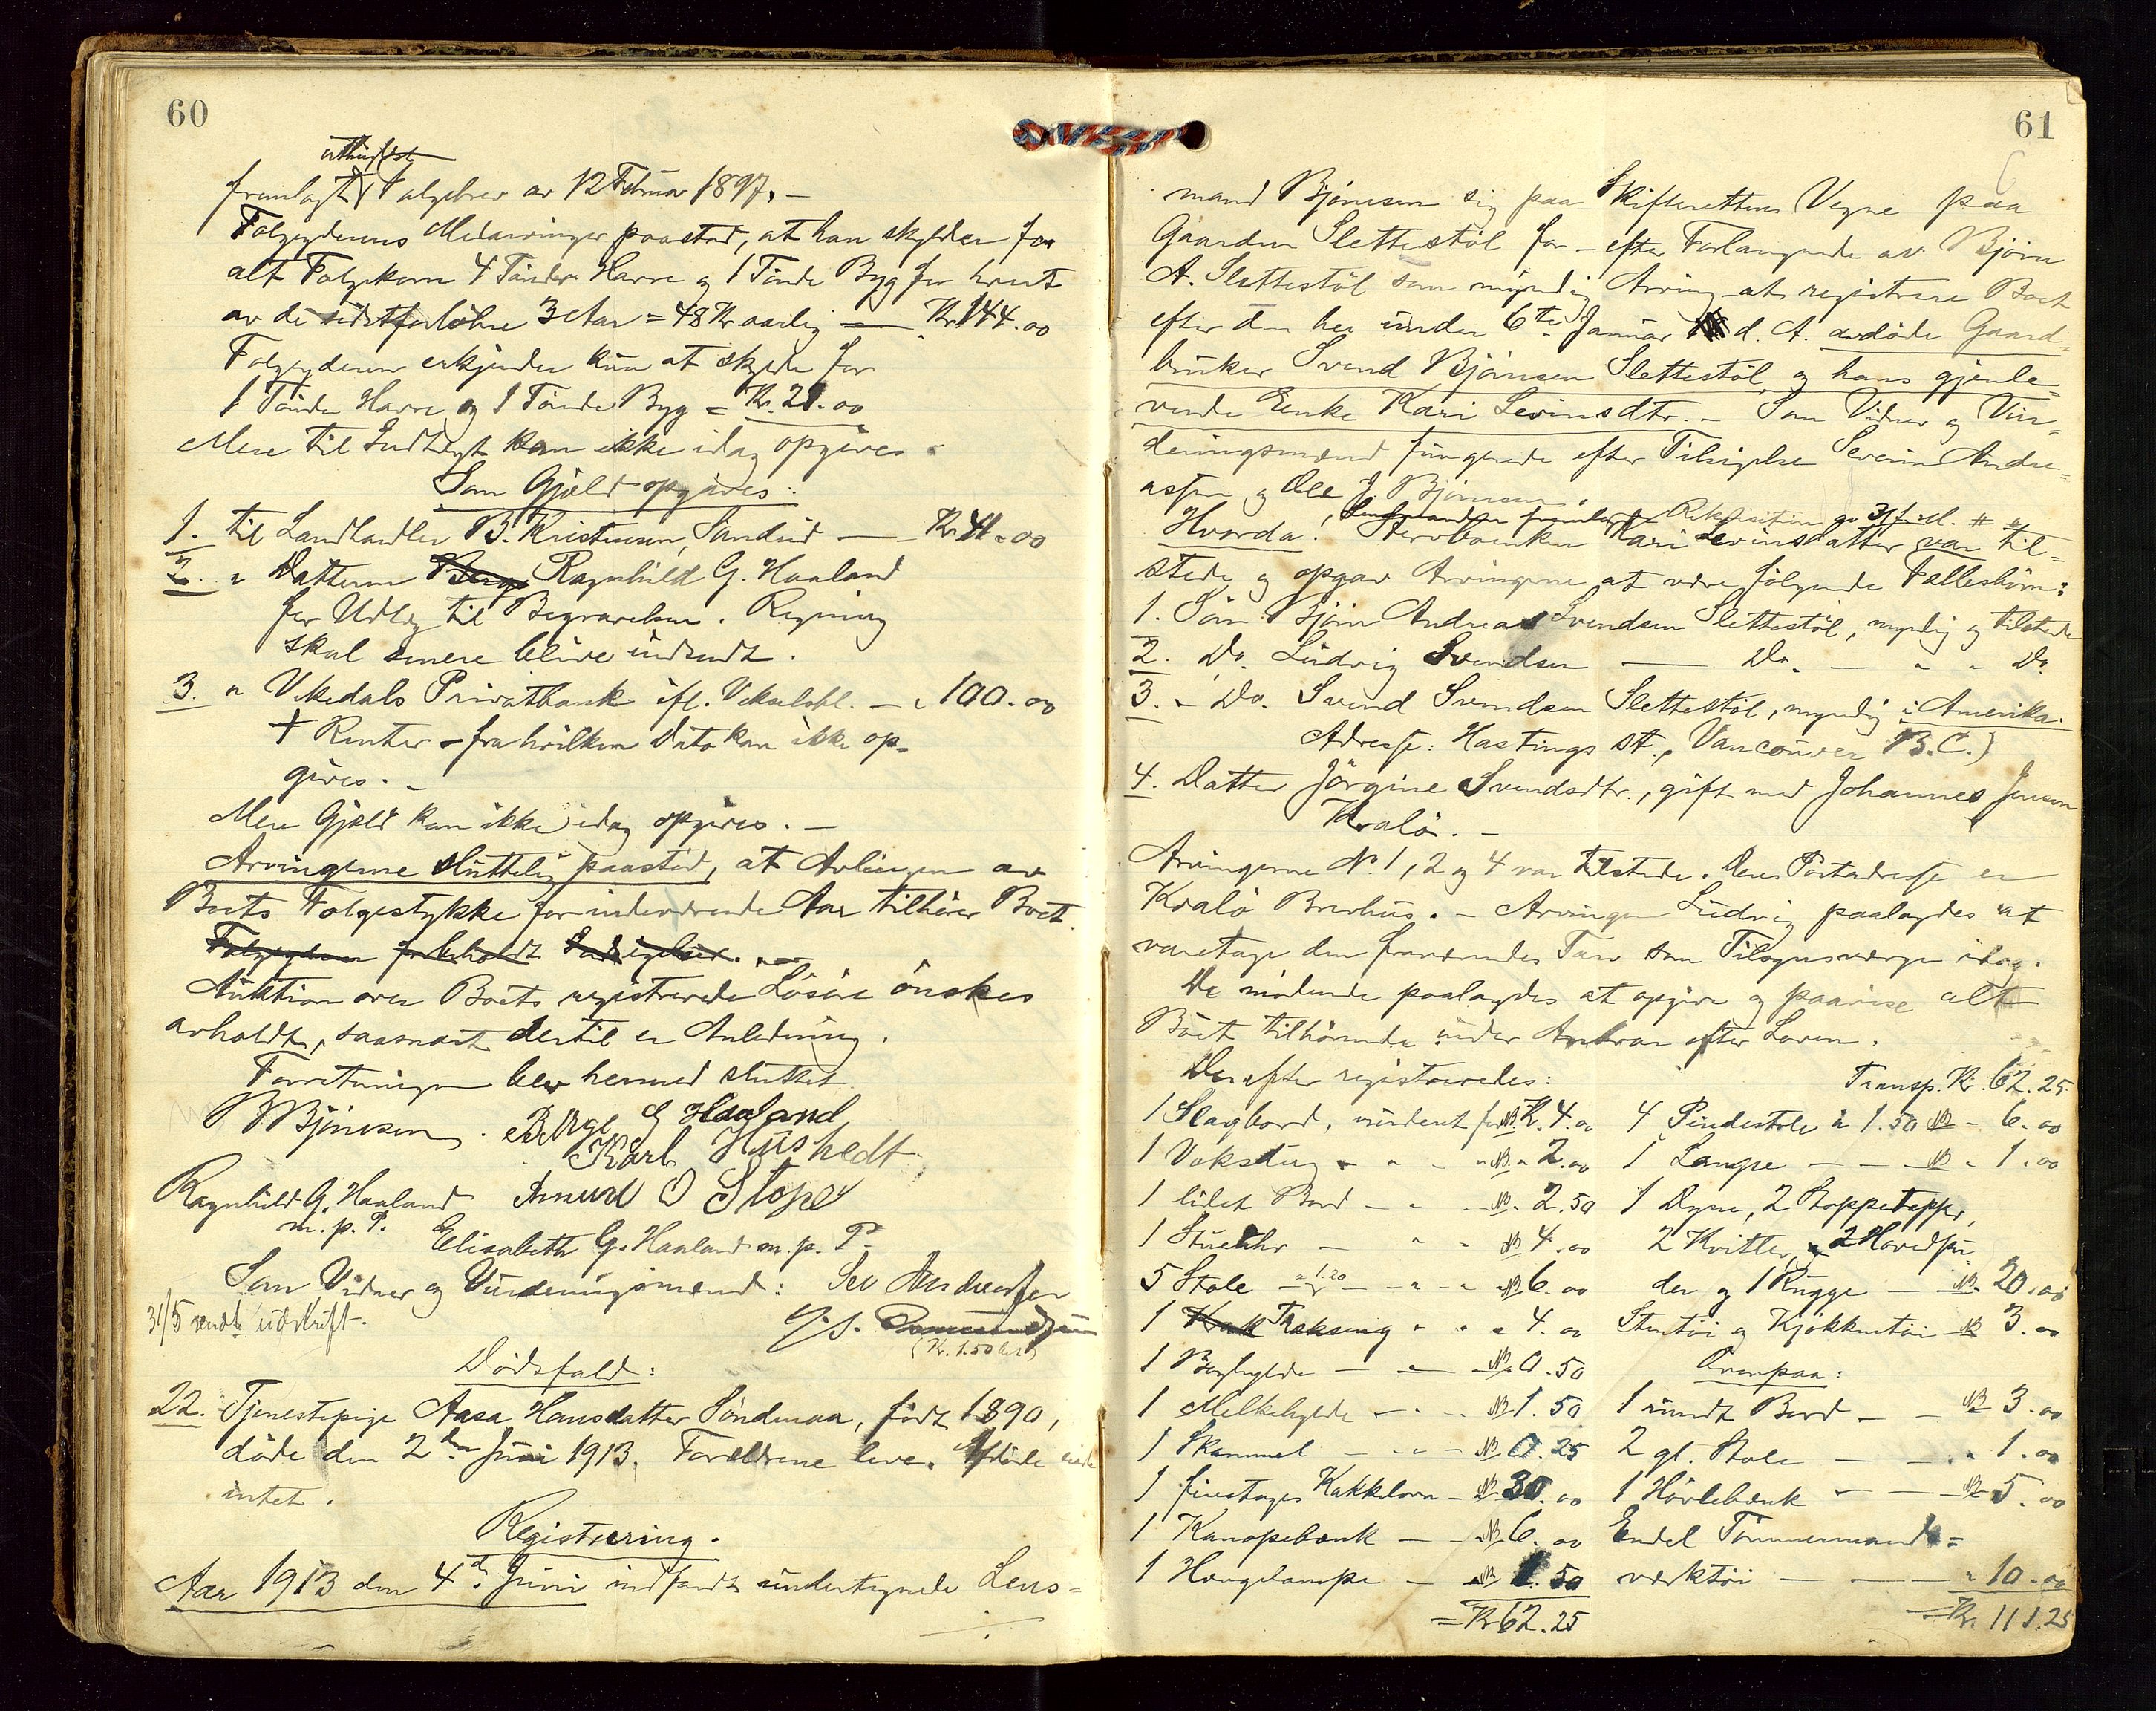 60
fremlagt Folgebrev av 12 Februar 1897. –
Folgyderens Medarvinger paastod, at han skylder for
alt Folgekorn 4 Tönder Havre og 1 Tönde Byg for hvert
av de sidstforløbne 3 Aar = 48 Kr aarlig — Kr. 144.00
Folgyderen erkjender kun at skylde for
1 Tönde Havre og 1 Tönde Byg = Kr. 21.00
Mere til Indtægt kan ikke idag opgives.
Som Gjæld opgives:
1. til Landhandler B. Kristensen, Sandeid — Kr 41.00
2. " Datteren Ragnhild G. Haaland
for Udlæg til Begravelsen. Regning
skal senere blive indsendt.
3. " Vikedals Privatbank ifl. Vekselobl. — " 100.00
+ Renter – fra hvilken Dato kan ikke op-
gives. –
Mere Gjæld kan ikke idag opgives. –
Arvingerne sluttelig paastod, at Avlingen av
Boets Folgestykke for indeværende Aar tilhører Boet.
Folgyderen forbeholdt
Auktion over Boets registrerede Løsøre önskes
avholdt, saasnart dertil er Anledning.
Forretningen blev hermed sluttet
B Bjönesen. Börge G Haaland
Karl Hushedt
Ragnhild G. Haaland Amund O Stople
m. p. P. Elisabeth G. Haaland m. p. P.
Som Vidner og Vurderingsmænd: Sev Andreassen
31/5 sendt udskrift.
(Kr. 1.50 bet.)
Dödsfald:
22. Tjenestepige Aasa Hansdatter Söndenaa, födt 1890,
döde den 2den Juni 1913. Forældrene lever. Afdöde eiede
intet.
Registrering.
Aar 1913 den 4de Juni indfandt undertegnede Lens-
61
mand Bjönesen sig paa Skifterettens Vegne paa
Gaarden Slettestöl for – efter Forlangende av Björn
A. Slettestöl som myndig Arving – at registrere Boet
efter den her under 6te Januar d. A. avdöde Gaard-
bruker Svend Björnsen Slettestöl og hans gjenle-
vende Enke Kari Levinsdtr. – Som Vidner og Vur-
deringsmænd fungerede efter Tilsigelse Severin Andre-
assen og Ole J. Björnsen.
Lensmanden fremlagde Rekvisition av 31 f. M.
Hvorda: Stervboenken Kari Levinsdatter var til-
stede og opgav Arvingerne at være følgende Fællesbörn:
1. Sön Björn Andreas Svendsen Slettestöl, myndig og tilstede
2. Do. Ludvig Svendsen — Do. — " " Do.
3. " Do. Svend Svendsen Slettestöl, myndig i Amerika.
Adresse: Hastings st., Vancouver B.C.)
4. Datter Jörgine Svendsdtr., gift med Johannes Jensen
Kvalö. –
Arvingerne No. 1, 2 og 4 var tilstede. Deres Postadresse er
Kvalö Brevhus. – Arvingen Ludvig paalagdes at
varetage den fraværendes Tarv som Tilsynsværge idag.
De mödende paalagdes at opgive og paavise alt
Boet tilhörende under Ansvar efter Loven.
Derefter registreredes:
1 Slagbord, vurderet for NB Kr. 4.00
1 Vokstug " " " NB " 2.00
1 lidet Bord — " " NB. 2.50
1 Stueuhr — " " NB 4.00
5 Stole à 1.20 — " " NB 6.00
1 Træksæng " " " 4.00
1 Boghylde — " — NB 0.50
1 Melkehylde — " NB 1.50
1 Skammel — " " NB 0.25
1 Kakkelovn — NB 30.00
1 Kanapebænk — — NB 6.00
1 Hængelampe — NB 1.50
= Kr 62.25
Transp. Kr. 62.25
4 Pindestole à 1.50 NB - 6.00
1 Lampe — — NB " 1.00
1 Dyne, 2 Stoppetepper,
2 Kvitler, 2 Hovedpu-
der og 1 Rugge — NB. 20.00
Stentöi og Kjökkentöi — NB 3.00
Ovenpaa:
1 rundt Bord — — NB 3.00
2 gl. Stole — — " 1.00
1 Hövlebænk — — NB 5.00
Endel Tömmermands-
værktöi — — " 10.00
= Kr. 111.25